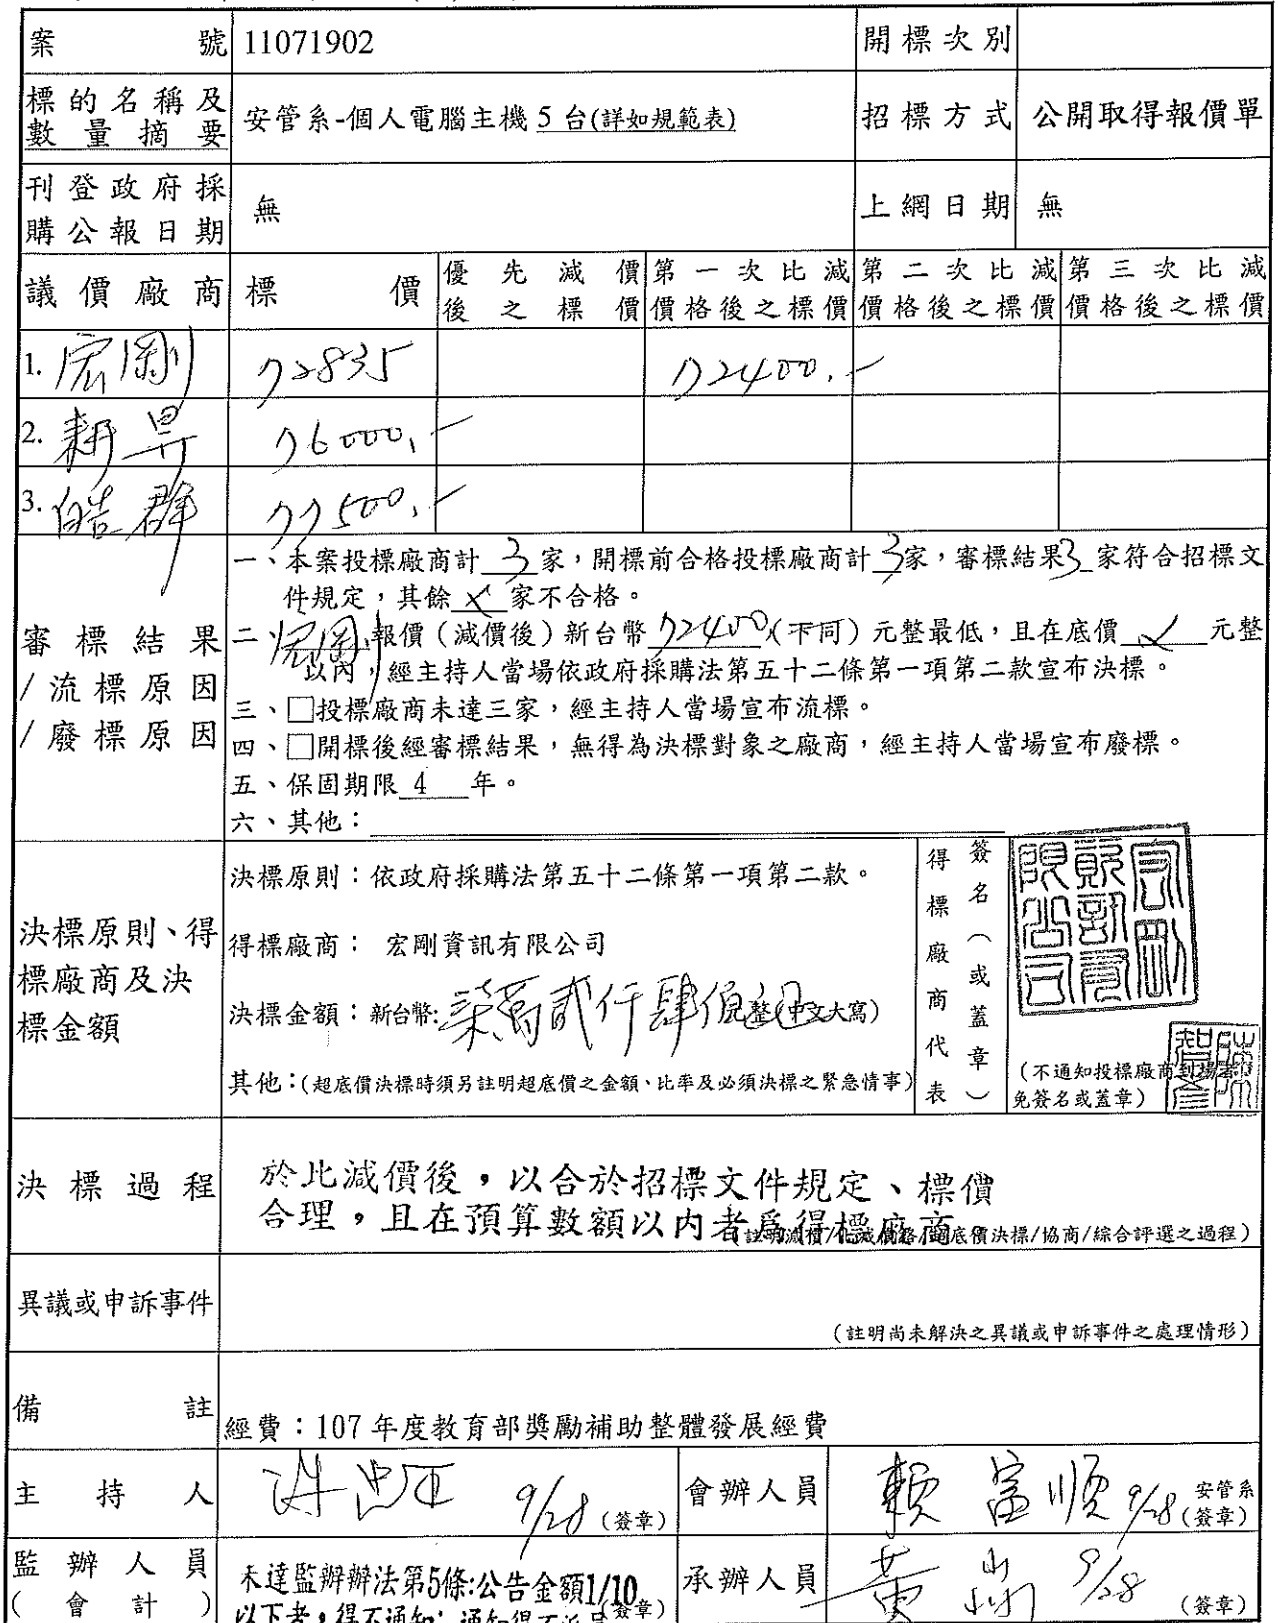 案號 11071902 開標次別
標的名稱及數量摘要 安管系-個人電腦主機 5 台(詳如規範表) 招標方式 公開取得報價單
刊登政府採購公報日期 無 上網日期 無
議價廠商 標價 優先減價後之標價 第一次比減價格後之標價 第二次比減價格後之標價 第三次比減價格後之標價
1. 宏剛 72835 72400.-
2. 耕昇 76000.-
3. 皓群 77500.-
審標結果/流標原因/廢標原因
一、本案投標廠商計 3 家，開標前合格投標廠商計 3 家，審標結果 3 家符合招標文
件規定，其餘 ✗ 家不合格。
二、宏剛 報價（減價後）新台幣 72400 （下同）元整最低，且在底價 ✓ 元整
以內，經主持人當場依政府採購法第五十二條第一項第二款宣布決標。
三、□投標廠商未達三家，經主持人當場宣布流標。
四、□開標後經審標結果，無得為決標對象之廠商，經主持人當場宣布廢標。
五、保固期限 4 年。
六、其他：
決標原則、得標廠商及決標金額
決標原則：依政府採購法第五十二條第一項第二款。
得標廠商： 宏剛資訊有限公司
決標金額：新台幣:柒萬貳仟肆佰 整(中文大寫)
其他：(超底價決標時須另註明超底價之金額、比率及必須決標之緊急情事)
得標廠商代表
簽名（或蓋章）
宏剛資訊有限公司
(不通知投標廠商到場者
免簽名或蓋章)
決標過程
於比減價後，以合於招標文件規定、標價
合理，且在預算數額以內者為得標廠商。
(註明減價/比減價格/超底價決標/協商/綜合評選之過程)
異議或申訴事件
(註明尚未解決之異議或申訴事件之處理情形)
備註 經費：107 年度教育部獎勵補助整體發展經費
主持人 9/28 (簽章) 會辦人員 賴富順 9/28 安管系(簽章)
監辦人員(會計) 未達監辦辦法第5條:公告金額1/10 (簽章) 承辦人員 黃 9/28 (簽章)